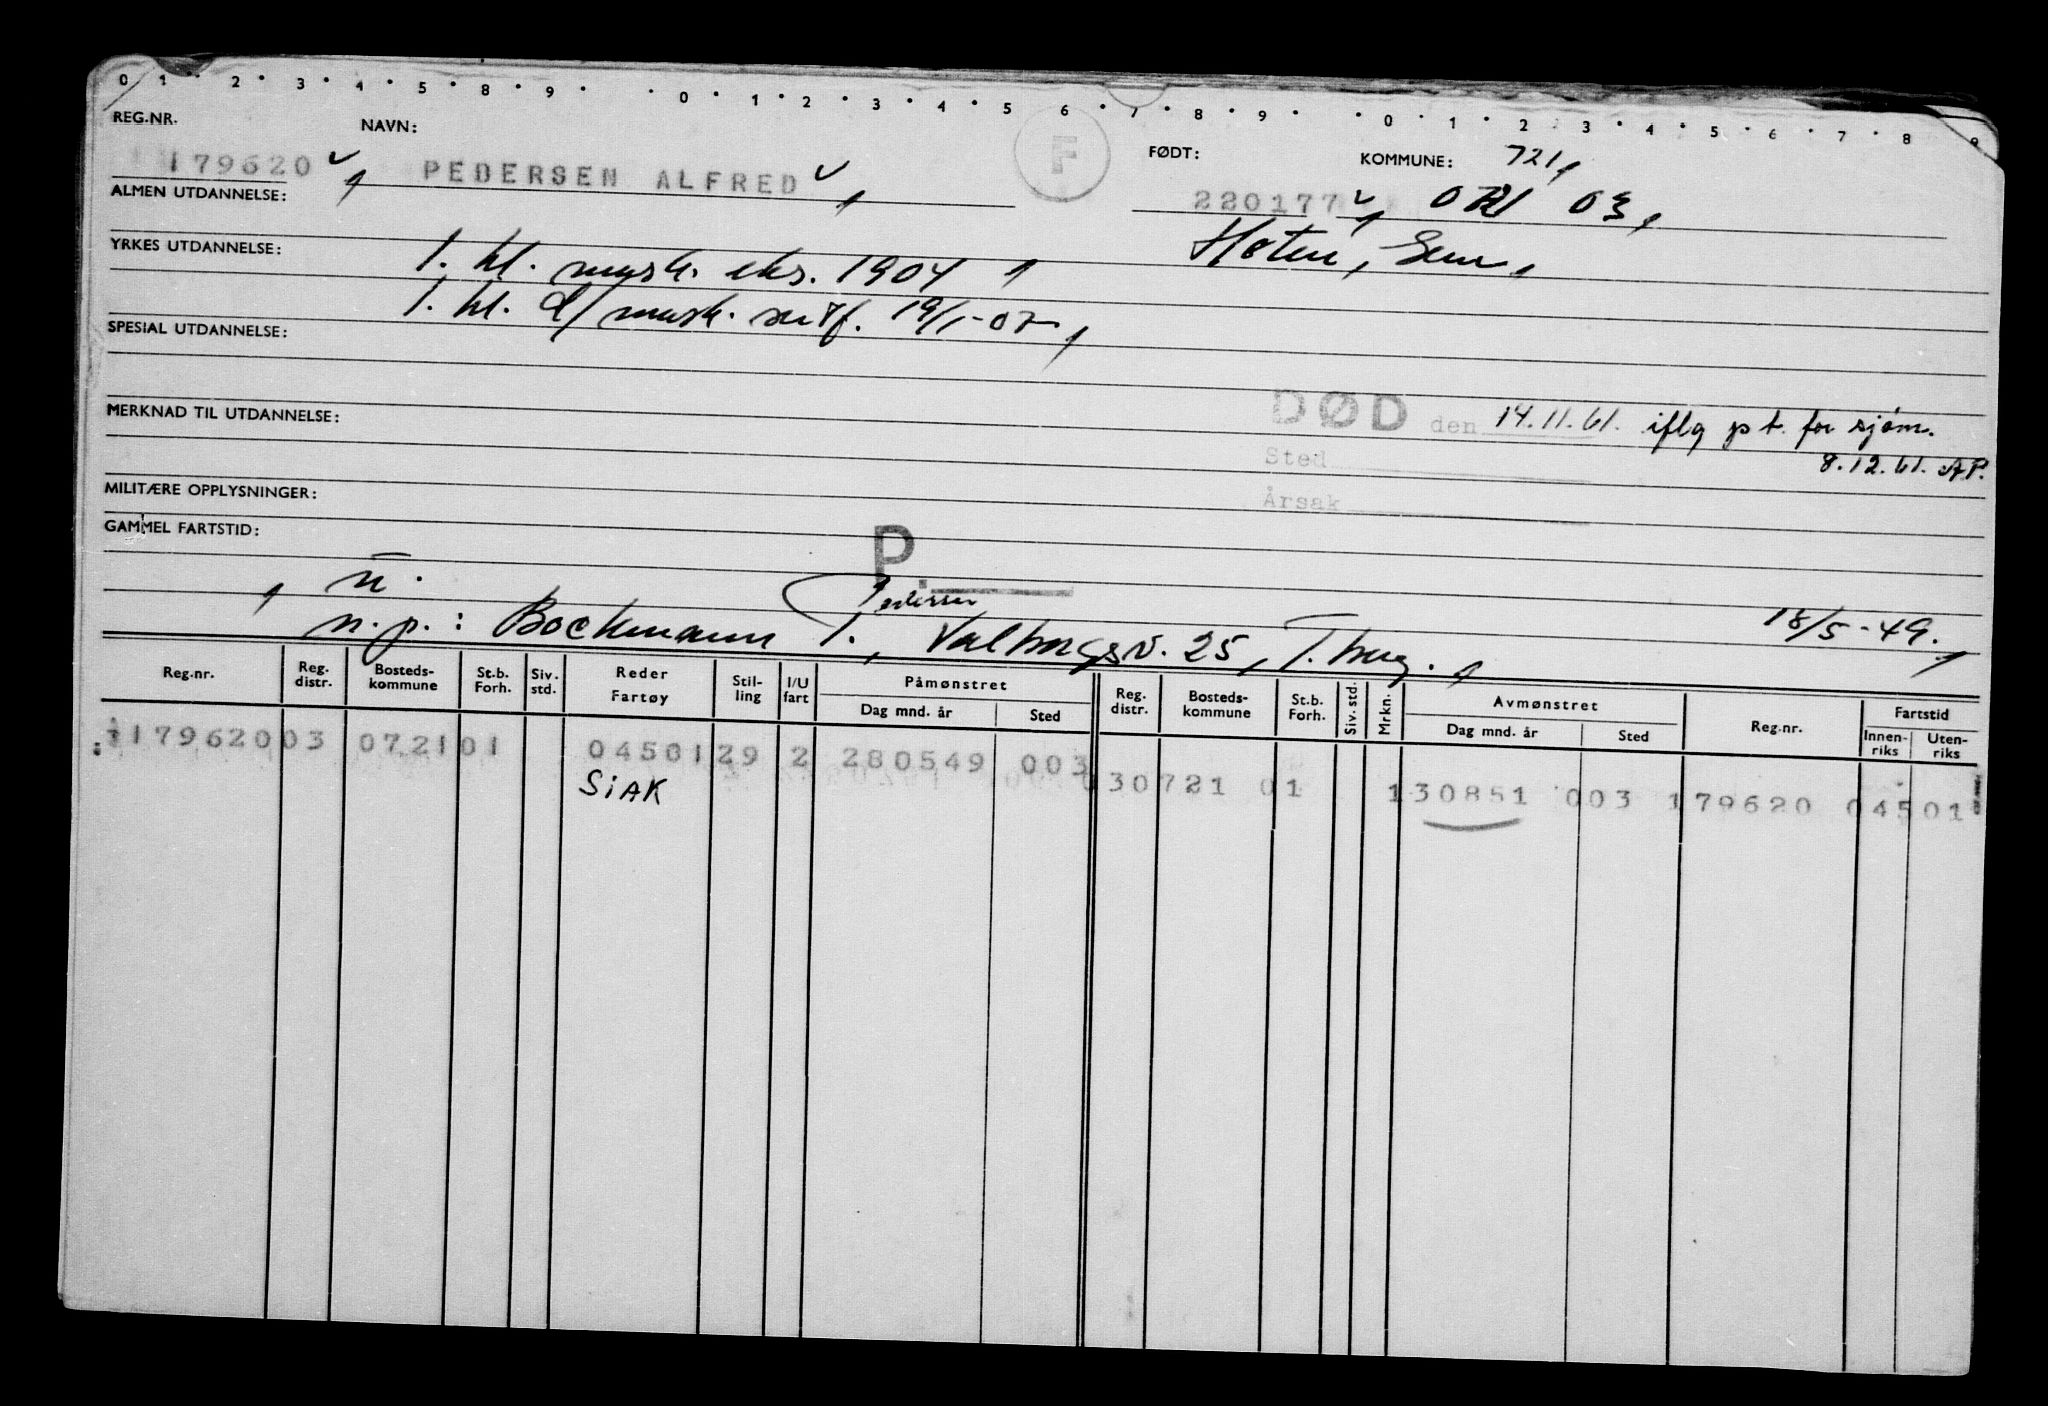 0 1 2 3 4 5 8 9 0 1 2 3 4 5 6 7 8 9 0 1 2 3 4 5 6 7 8 9
REG.NR. NAVN: F FØDT: KOMMUNE: 721
179620 PEDERSEN ALFRED 220177 03
ALMEN UTDANNELSE:
YRKES UTDANNELSE: 1. kl. mask. eks. 1904 Sem
1. kl. d/ mask. sertf. 19/1-07
SPESIAL UTDANNELSE:
MERKNAD TIL UTDANNELSE: DØD den 14.11.61. iflg pt. for sjøm.
Sted 8.12.61. AP.
MILITÆRE OPPLYSNINGER: Årsak
GAMMEL FARTSTID: P.
n. Pedersen
n.p.: Bockmann T., Valborgsv. 25, T.berg. 18/5-49.
Reg.nr. Reg. distr. Bosteds-kommune St.b. Forh. Siv. std. Reder Fartøy Stil-ling I/U fart Påmønstret Dag mnd. år Sted Reg. distr. Bosteds-kommune St.b. Forh. Siv. std. Mrkn. Avmønstret Dag mnd. år Sted Reg.nr. Fartstid Innen-riks Uten-riks
179620 03 0721 01 04501 29 2 280549 003 030721 01 130851 003 179620 04501
SIAK